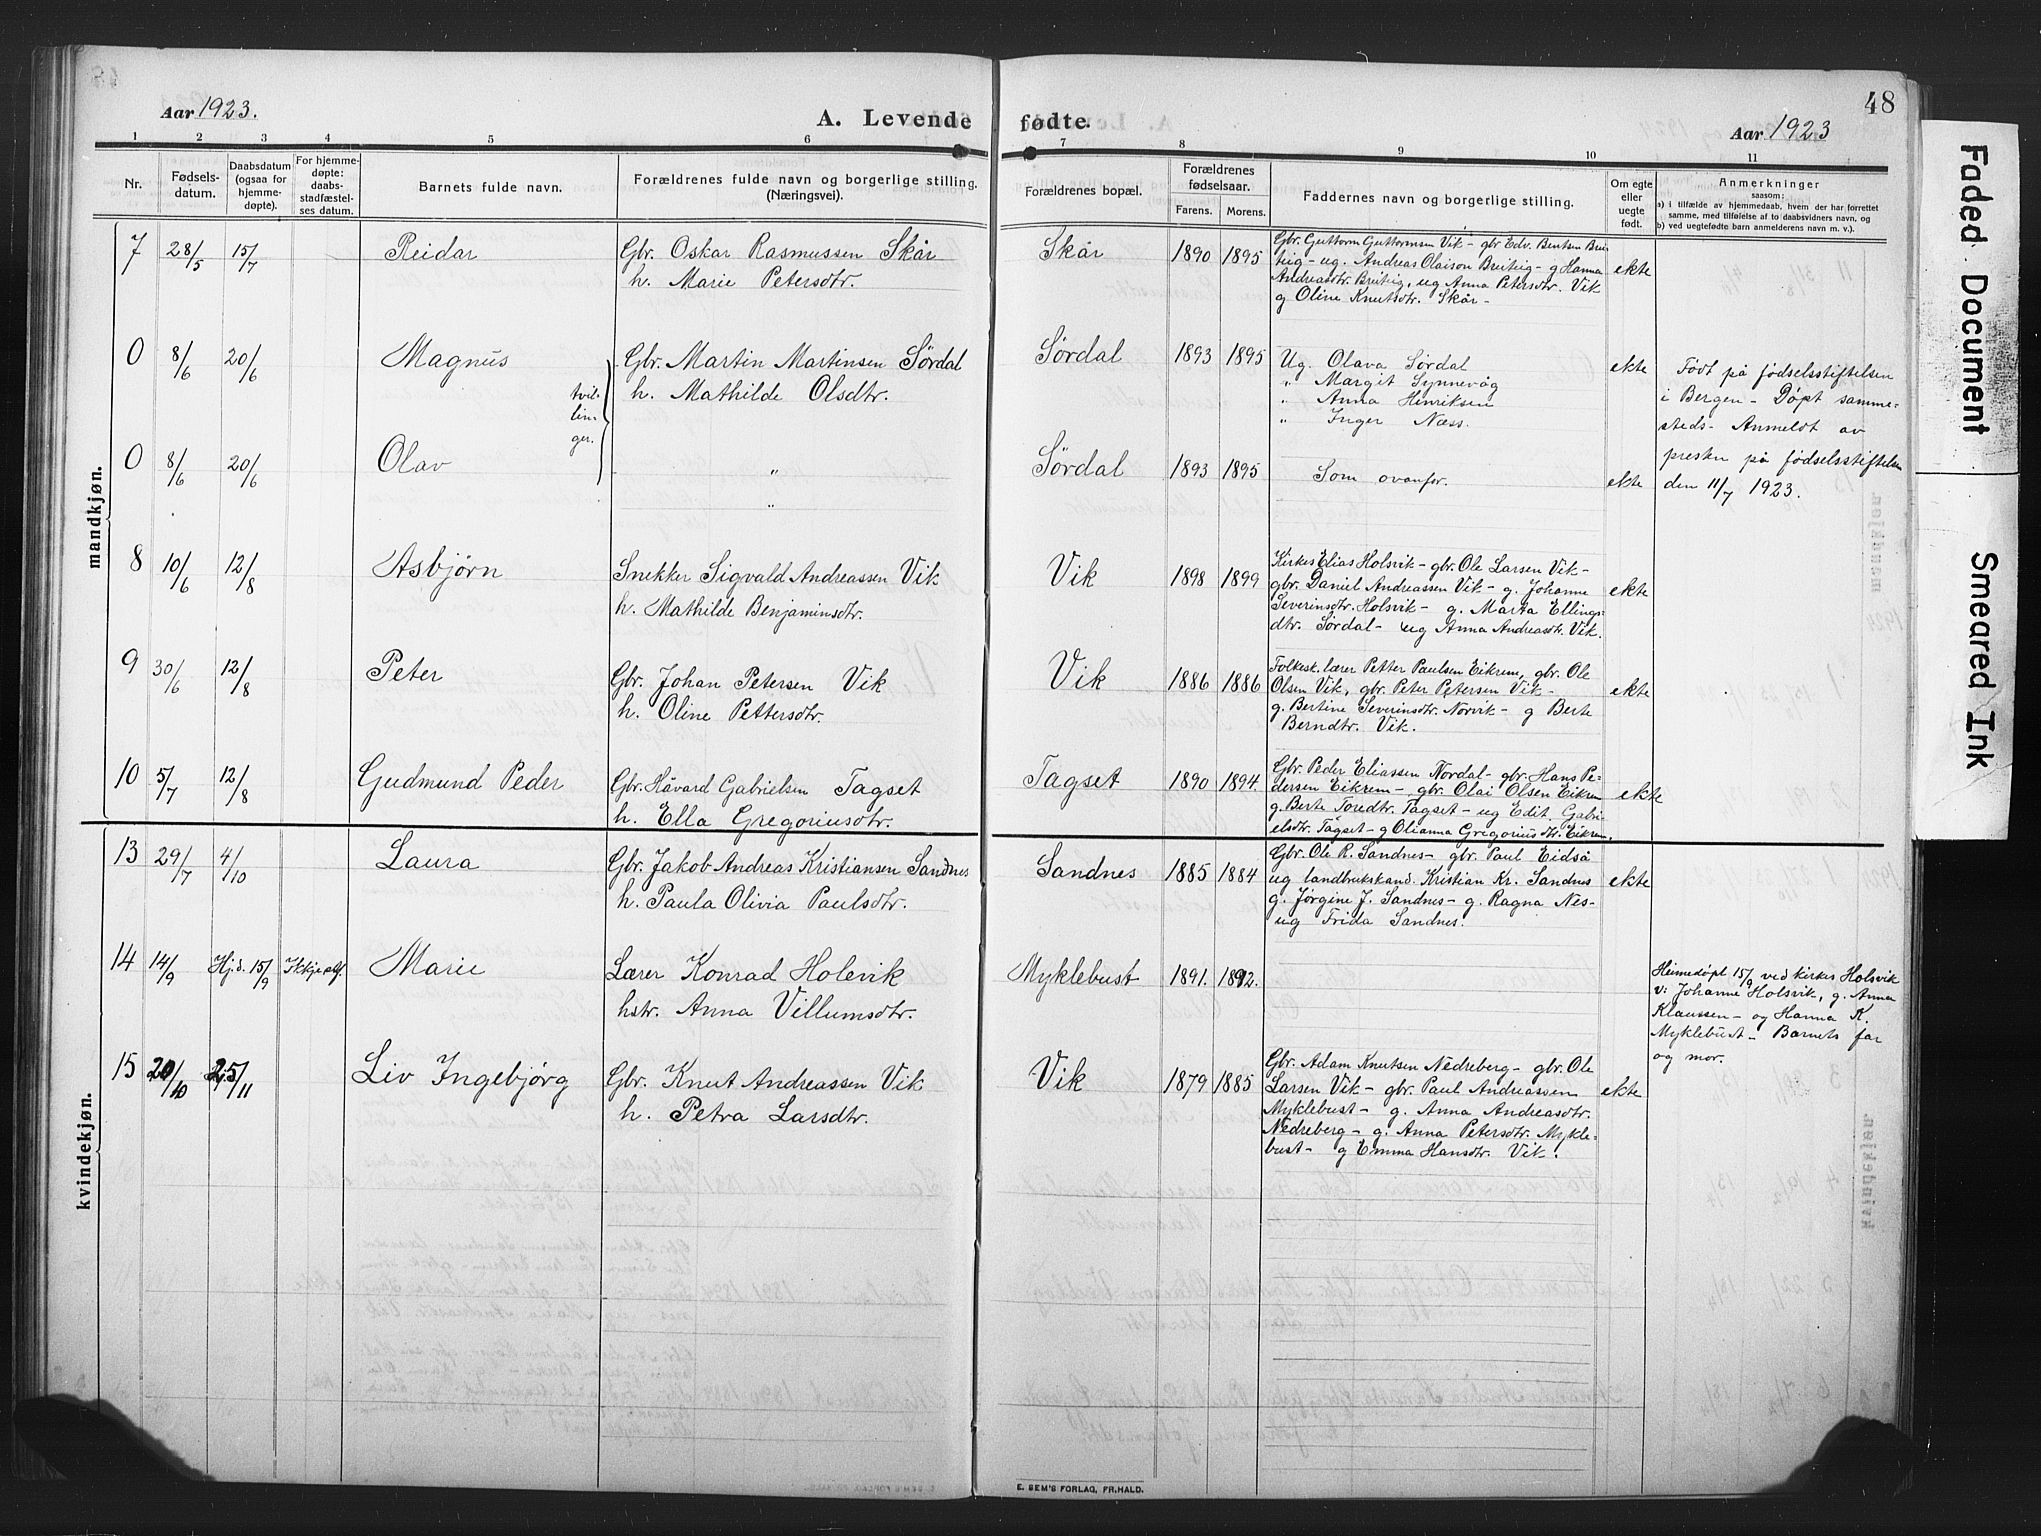 Aar 1923.
A. Levende fødte.
Aar 1923
48
1 2 3 4 5 6 7 8 9 10 11
Nr.
Fødsels-
datum.
Daabsdatum
(ogsaa for
hjemme-
døpte).
For hjemme-
døpte:
daabs-
stadfæstel-
ses datum.
Barnets fulde navn.
Forældrenes fulde navn og borgerlige stilling.
(Næringsvei).
Forældrenes bopæl.
Forældrenes
fødselsaar.
Farens. Morens.
Faddernes navn og borgerlige stilling.
Om egte
eller
uegte
født.
Anmerkninger
saasom:
a) i tilfælde av hjemmedaab, hvem der har forrettet
samme, med tilføielse af to daabsvidners navn, og
b) ved uegtefødte barn anmelderens navn m. v.).
mandkjøn.
7 28/5 15/7 Reidar
Gbr. Oskar Rasmussen Skår
h. Marie Petersdtr.
Skår 1890 1895
Gbr. Guttorm Guttormsen Vik - gbr Edv. Bentsen Brei-
teig - ug. Andreas Olaison Breiteig - g Hanna
Andreasdtr. Breiteig, ug Anna Petersdtr. Vik
g Oline Knutsdtr. Skår -
ekte
0 8/6 20/6 Magnus
tvil-
lin-
ger.
Gbr. Martin Martinsen Sördal
h. Mathilde Olsdtr.
Sørdal 1893 1895
Ug. Olava Sørdal
" Margit Synnevåg
" Anna Henriksen
" Inger Næss.
ekte
Født på fødselsstiftelsen
i Bergen - Døpt samme-
steds - Anmeldt av
presten på fødselsstiftelsen
den 11/7 1923.
0 8/6 20/6 Olav
"
"
Sørdal 1893 1895
Som ovanfor.
ekte
8 10/6 12/8 Asbjørn
Snekker Sigvald Andreassen Vik
h. Mathilde Benjaminsdtr.
Vik 1898 1899
Kirkes Elias Holsvik - gbr. Ole Larsen Vik -
gbr. Daniel Andreassen Vik - g. Johanne
Severinsdtr. Holsvik - g. Marta Ellings-
dtr. Sørdal - ug Anna Andreasdtr. Vik.
ekte
9 30/6 12/8 Peter
Gbr. Johan Petersen Vik
h. Oline Pettersdtr.
Vik 1886 1886
Folkesk.lærer Petter Paulsen Eikrem, gbr. Ole
Olsen Vik, gbr. Peter Petersen Vik -
g. Bertine Severinsdtr. Norvik - g Berte
Berndtr. Vik.
ekte
10 5/7 12/8 Gudmund Peder
Gbr. Håvard Gabrielsen Tagset
h. Ella Gregoriusdtr.
Tagset 1890 1894
Gbr. Peder Eliassen Nordal - gbr. Hans Pe-
dersen Eikrem - gbr. Olai Olsen Eikrem
g. Berte Toredtr. Tagset - ug Edit Gabri-
elsdtr. Tagset - g Olianna Gregoriusdtr. Eikrem.
ekte
kvindekjøn.
13 29/7 4/10 Laura
Gbr. Jakob Andreas Kristiansen Sandnes
h. Paula Olivia Paulsdtr.
Sandnes 1885 1884
Gbr. Ole R. Sandnes - gbr. Paul Eidså
ug landbrukskand. Kristian Kr. Sandnes
g. Jørgine J. Sandnes - g. Ragna Nes -
ug Frida Sandnes.
ekte
14 14/9 Hj.d. 15/9 Marie
Lærer Konrad Holevik
hstr. Anna Villumsdtr.
Myklebust 1891. 1892.
Heimedøpt 15/9 ved kirkes Holsvik
v: Johanne Holsvik, g. Anna
Klaussen - og Hanna K.
Myklebust - Barnets far
og mor.
15 20/10 25/11 Liv Ingebjørg
Gbr. Knut Andreassen Vik
h. Petra Larsdtr.
Vik 1879 1885
Gbr. Adam Knutsen Nedreberg - gbr. Ole
Larsen Vik - gbr. Paul Andreassen
Myklebust - g. Anna Andreasdtr.
Nedreberg - g. Anna Petersdtr. Mykle-
bust - g Emma Hansdtr. Vik.
ekte
E. SEM'S FORLAG, FR.HALD.
Faded Document
Smeared Ink